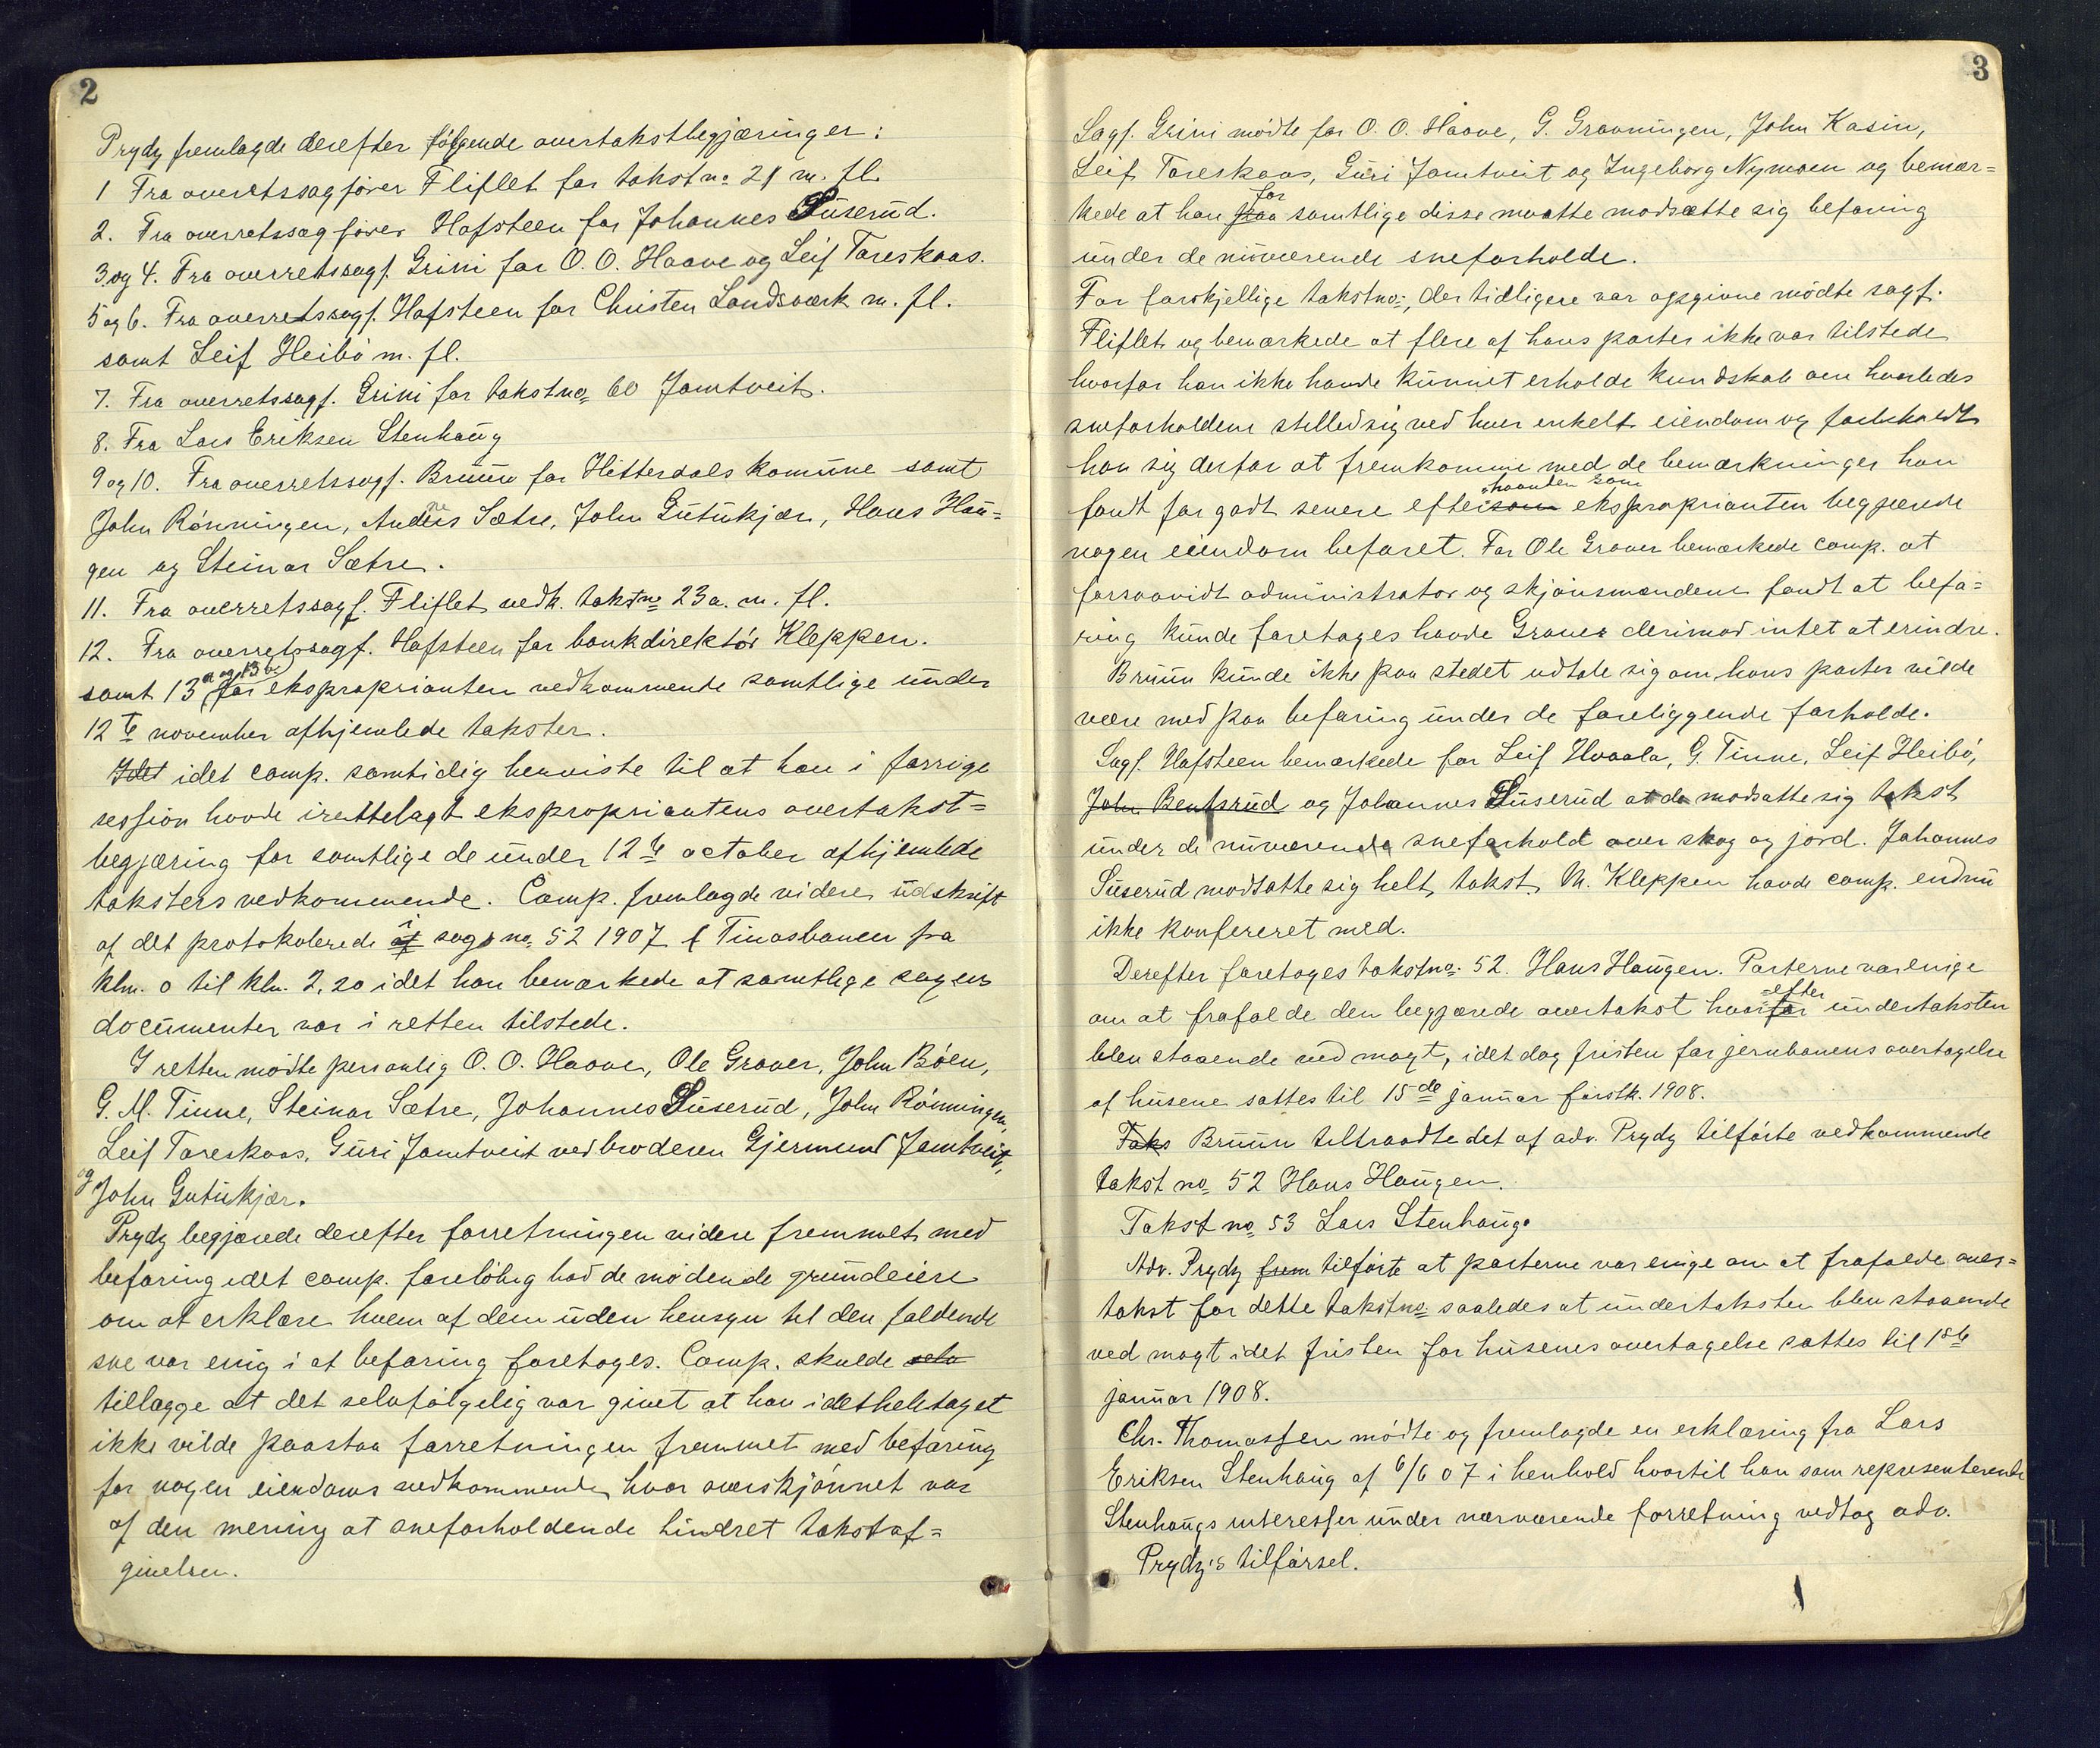 2
Prydz fremlagde derefter følgende overtakstbegjæringer:
1 Fra overetssagfører Fliflet for takst no 21 m. fl.
2. Fra overretssagfører Hofsteen for Johannes Suserud.
3 og 4. Fra overretssagf. Grini for O. O. Haave og Leif Tareskaas.
5 og 6. Fra overretssagf. Hafsteen for Christen Landsværk m. fl.
samt Leif Heibø m. fl.
7. Fra overretssagf. Grini for takst no 60 Jamtveit.
8. Fra Lars Eriksen Stenhaug
9 og 10. Fra overretssagf. Bruun for Hitterdals komune samt
John Rønningen, Andres Sætre, John Gutukjær, Hans Hau=
gen og Steinar Sætre.
11. Fra overretssagf. Fliflet vedk. takst no 23a. m. fl.
12. Fra overretssagf. Hafsteen for bankdirektør Kleppen.
samt 13 a og 13 b for eksproprianten vedkommende samtlige under
12te november afhjemlede takster.
Idet idet comp. samtidig henviste til at han i forrige
session havde irettelagt eksproprianten​s overtakst=
begjæring for samtlige de under 12te october afhjemlede
taksters vedkommende. Comp. fremlagde videre udskrift
af det protokolerede af i sags no. 52 1907 f Tinosbanen fra
klm. 0 til klm. 2,20 idet han bemærkede at samtlige sagens
documenter var i retten tilstede.
I retten mødte personlig O. O. Haave, Ole Graver, John Bøen,
G. M. Tinne, Steinar Sætre, Johannes Suserud, John Rønningen,
Leif Tareskaas, Guri Jamtveit ved broderen Gjermund Jamtveit,
og John Gutukjær.
Prydz begjærede derefter forretningen videre fremmet med
befaring idet comp. foreløbig bad de mødende grundeiere
om at erklære hvem af dem uden hensyn til den faldende
sne var enig i at befaring foretages. Comp. skulde selv
tillægge at det selvfølgelig var givet at han idetheletaget
ikke vilde paastaa forretningen fremmet med befaring
for nogen eiendoms vedkommende, hvor overskjønnet var
af den mening at sneforholdende hindret takstaf=
givelsen.
3
Sagf. Grini mødte for O. O. Haave, G. Gravningen, John Kasin,
Leif Tareskaas, Guri Jamtveit og Ingeborg Nymoen og bemær=
kede at han paa for samtlige disse maatte modsætte sig befaring
under de nuværende sneforholde.
For forskjellige takstno:, der tidligere var opgivne mødte sagf.
Fliflet og bemærkede at flere af hans parter ikke var tilstede
hvorfor han ikke havde kunnet erholde kundskab om hvorledes
sneforholdene stilled sig ved hver enkelt eiendom og forbeholdt
han sig derfor at fremkomme med de bemærkninger han
fandt for godt senere eftersom =haanden som eksproprianten begjærede
nogen eiendom befaret. For Ole Graver bemærkede comp. at
forsaavidt administrator og skjønsmændene fandt at befa=
ring kunde foretages havde Graver derimod intet at erindre.
Bruun kunde ikke paa stedet udtale sig om hans parter vilde
være med paa befaring under de foreliggende forholde.
Sagf. Hafsteen bemærkede for Leif Hvaala, G. Tinne, Leif Heibø,
John Bentsrud og Johannes Suserud at de modsatte sig takst
under de nuværende sneforhold over skog og jord. Johannes
Suserud modsatte sig helt takst. M. Kleppen havde comp. endnu
ikke konfereret med.
Derefter foretoges takstno: 52. Hans Haugen. Parterne var enige
om at frafalde den begjærede overtakst hvorfor =efter undertaksten
blev staaende ved magt, idet dog fristen for jernbanens overtagelse
af husene sattes til 15de januar førstk. 1908.
Taks Bruun tiltraadte det af adv. Prydz tilførte vedkommende
takst no 52 Hans Haugen.
Takst no 53 Lars Stenhaug.
Adv. Prydz frem tilførte at parterne var enige om at frafalde over=
takst for dette takstno. saaledes at undertaksten blev staaende
ved magt idet fristen for husenes overtagelse sattes til 1ste
januar 1908.
Chr. Thomassen mødte og fremlagde en erklæring fra Lars
Eriksen Stenhaug af 6/6 07 i henhold hvortil han som representerende
Stenhaugs interesser under nærværende forretning vedtog adv.
Prydz's tilførsel.